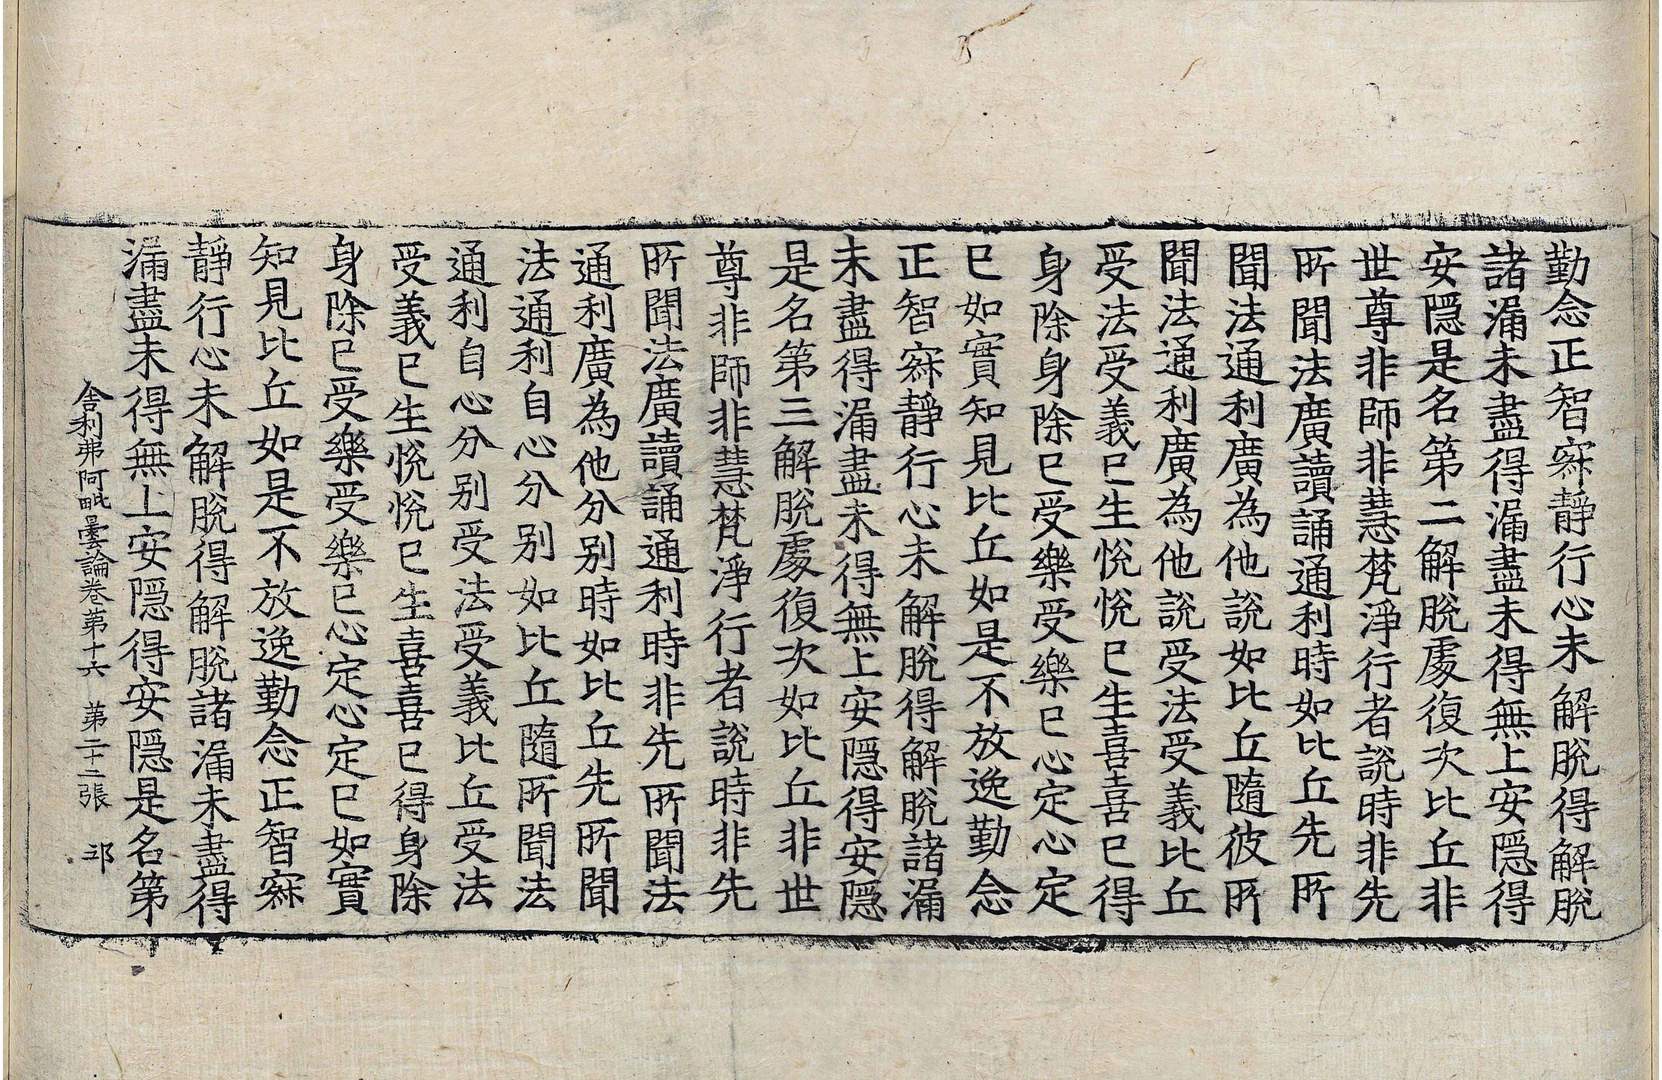 勤念正智寂靜行心未解脫得解脫
諸漏未盡得漏盡未得無上安隱得
安隱是名第二解脫處復次比丘非
世尊非師非慧梵淨行者說時非先
所聞法廣讀誦通利時如比丘先所
聞法通利廣為他說如比丘隨彼所
聞法通利廣為他說受法受義比丘
受法受義已生悅悅已生喜喜已得
身除身除已受樂受樂已心定心定
已如實知見比丘如是不放逸勤念
正智寂靜行心未解脫得解脫諸漏
未盡得漏盡未得無上安隱得安隱
是名第三解脫處復次如比丘非世
尊非師非慧梵淨行者說時非先
所聞法廣讀誦通利時非先所聞法
通利廣為他分別時如比丘先所聞
法通利自心分別如比丘隨所聞法
通利自心分別受法受義比丘受法
受義已生悅悅已生喜喜已得身除
身除已受樂受樂已心定心定已如實
知見比丘如是不放逸勤念正智寂
靜行心未解脫得解脫諸漏未盡得
漏盡未得無上安隱得安隱是名第
舍利弗阿毗曇論卷第十六 第二十二張